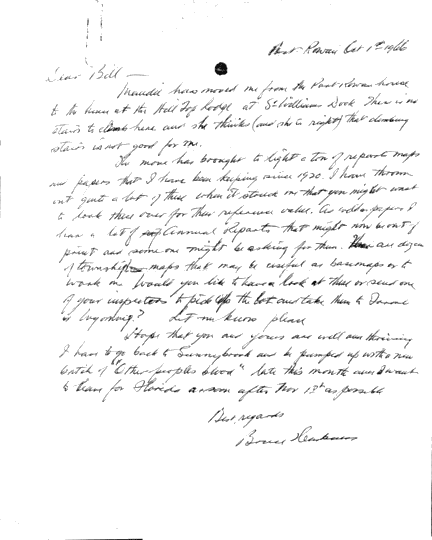 Port Rowan Oct 1st 1966
Dear Bill —
has moved me from the Port Rowan house
to the house at the Hill Top Lodge at St Williams Dock There is no
stairs to climb here and she thinks (and she is right) that climbing
stairs is not good for me.
The move has brought to light a ton of reports maps
and papers that I have been keeping since 1920. I have thrown
out quite a lot of these when it struck me that you might want
to look these over for their reference value. As well as papers I
have a lot of Annual Reports that might now be out of
print and some one might be asking for them. There are dozens
of township maps that may be useful as basemaps or to
work on. Would you like to have a look at these or send one
of your inspectors to pick up the lot and take them to
or ? Let me know please
I hope that you and yours are well and thriving
I have to go back to Sunnybrook and be pumped up with a new
batch of "Other peoples blood" late this month and I want
to leave for Florida as soon after Nov 1st as possible
Best regards
Bruce